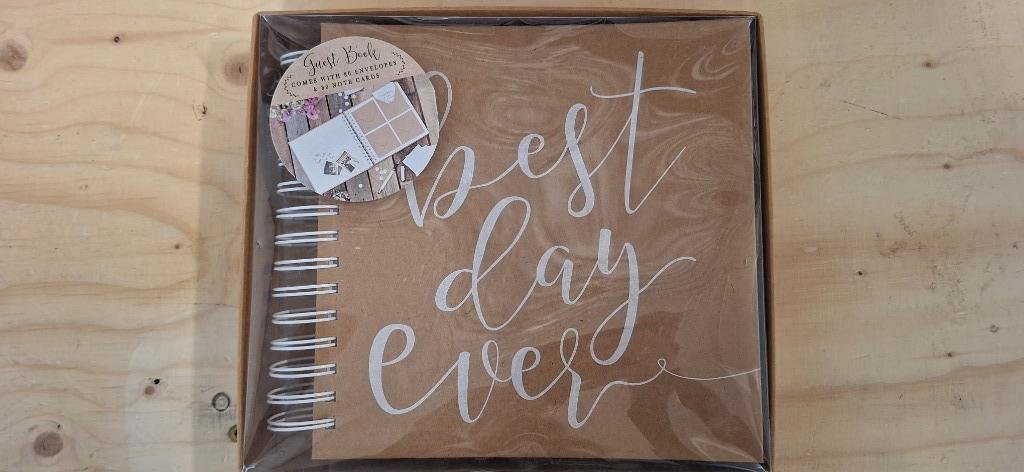 Guest Book
COMES WITH 80 ENVELOPES
& 92 NOTE CARDS
best
day
ever